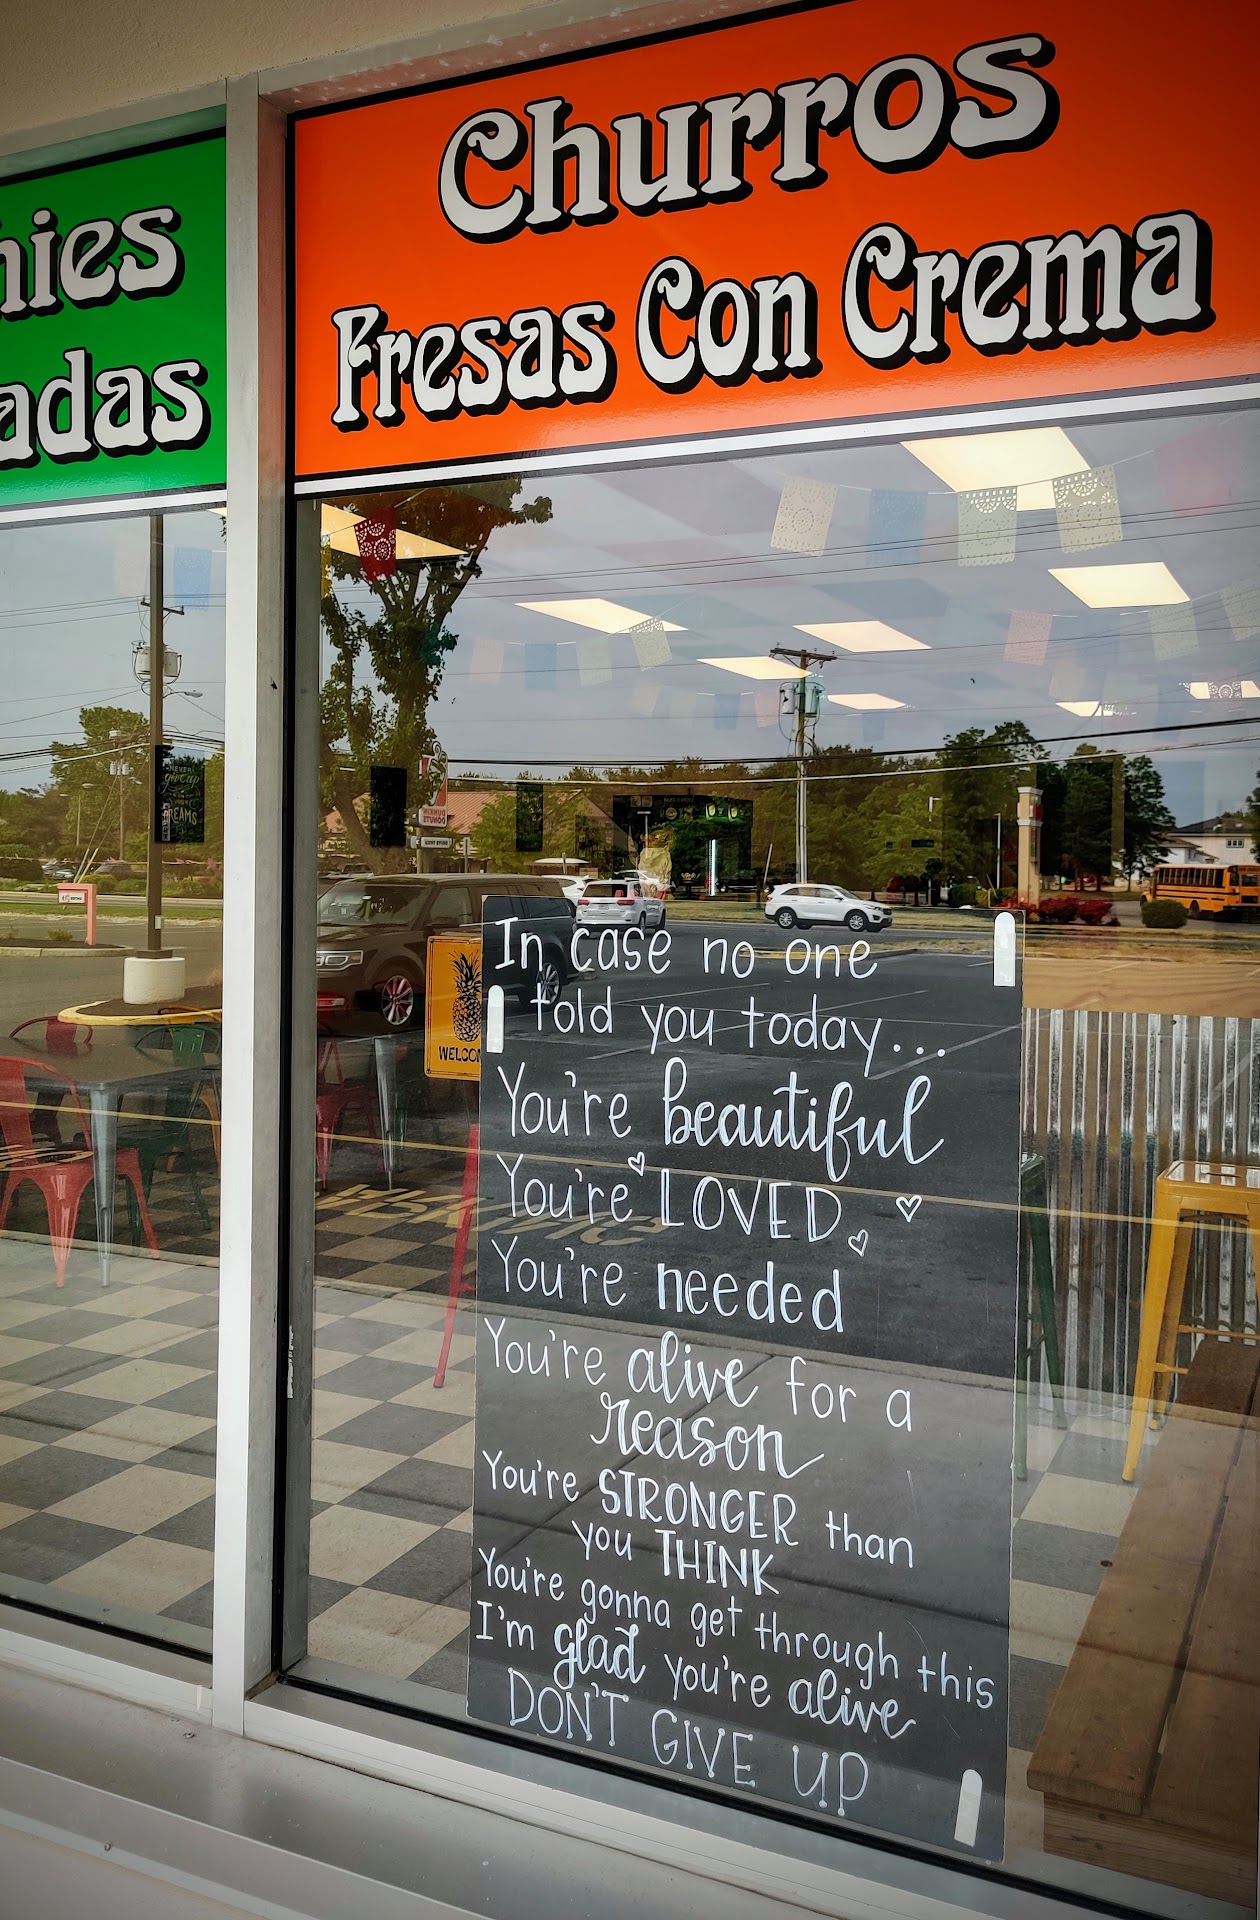 Churros
Fresas Con Crema
In case no one
told you today...
You're beautiful
You're LOVED
You're needed
You're alive for a
reason
You're STRONGER than
you THINK
You're gonna get through this
I'm glad you're alive
DON'T GIVE UP
NEVER
give up
DREAMS